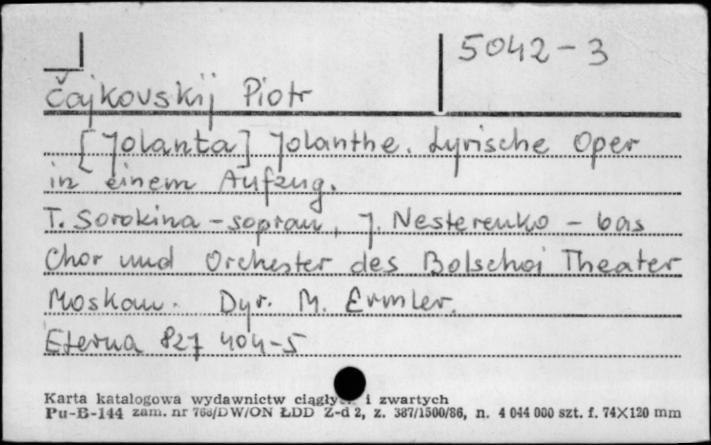 5042-3
Čajkovskij Piotr
[Jolanta] Jolanthe. Lyrische Oper
in einem Aufzug.
T. Sorokina - sopran, J. Nesterenko - bas
Chor und Orchester des Bolschoi Theater
Moskau. Dyr. M. Ermler.
Eterna 827 404-5
Karta katalogowa wydawnictw ciągłych i zwartych
Pu-B-144 zam. nr 768/DW/ON ŁDD Z-d 2, z. 387/1500/86, n. 4 044 000 szt. f. 74×120 mm